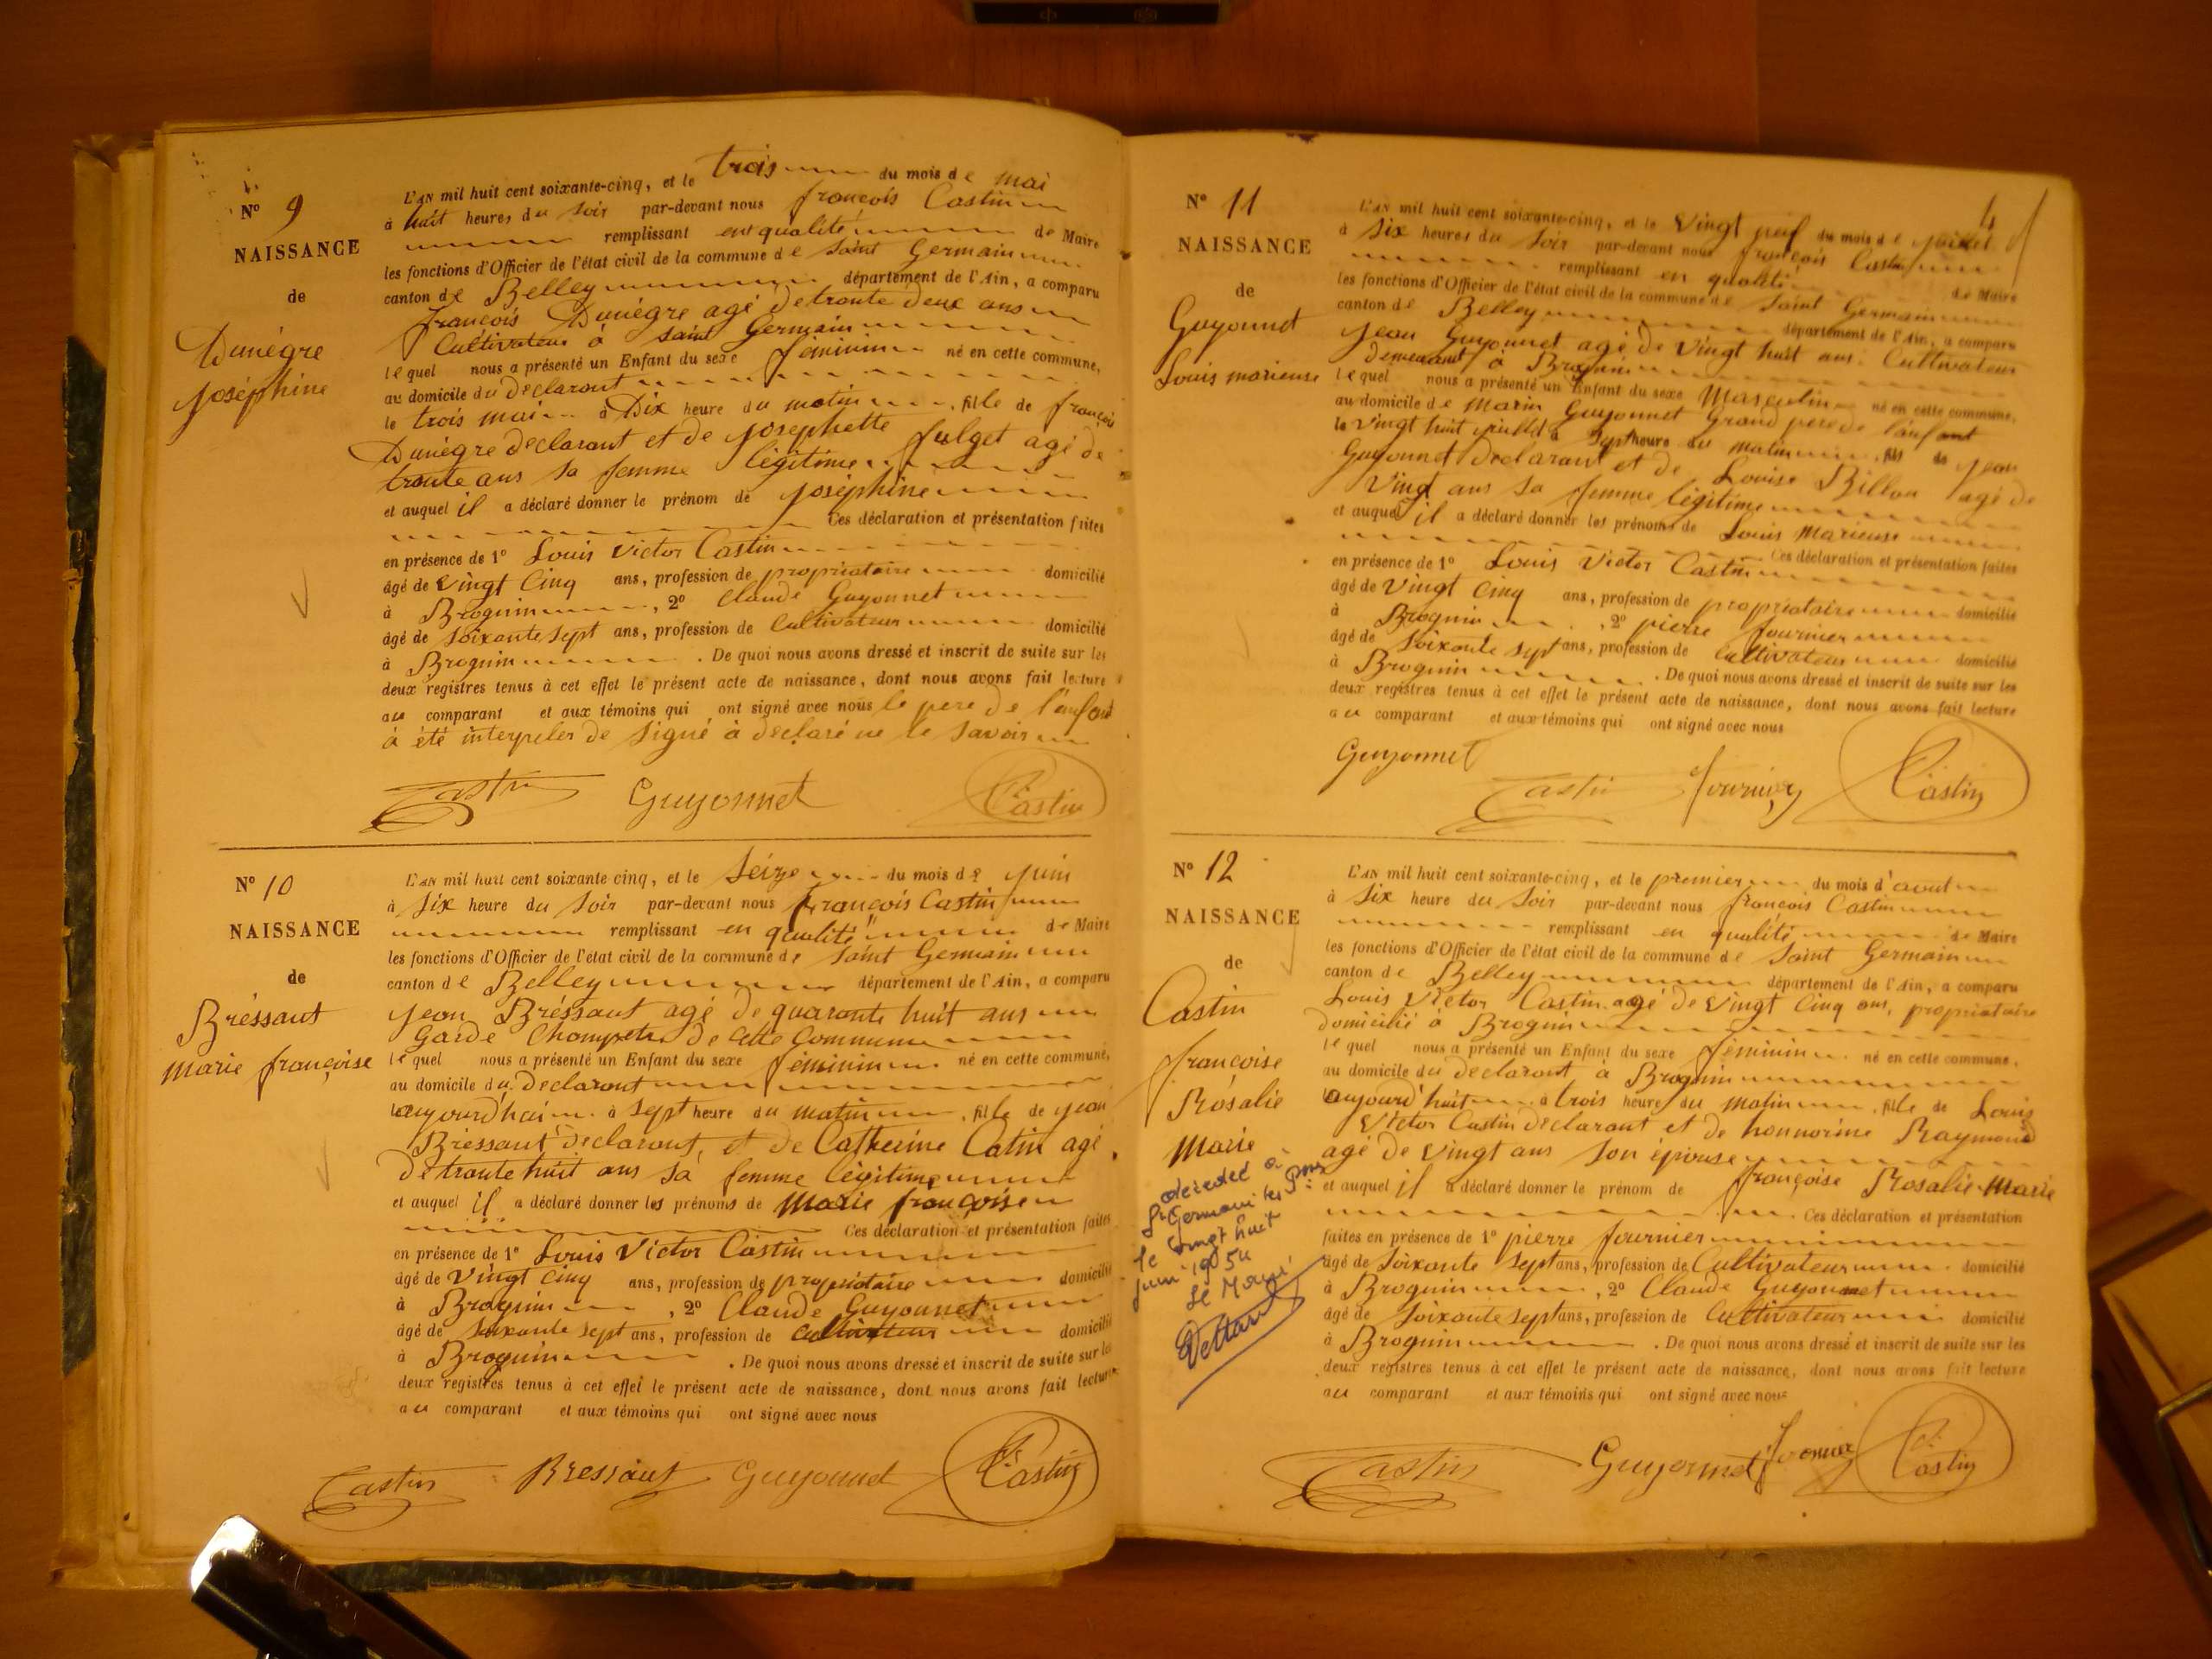 N° 9
NAISSANCE
de
Dunégre
Joséphine
L'AN mil huit cent soixante-cinq, et le trois du mois de mai
à huit heures du soir par-devant nous françois Castin
remplissant en qualité de Maire
les fonctions d'Officier de l'état civil de la commune de Saint Germain
canton de Belley département de l'Ain, a comparu
françois Dunégre agé de trante deux ans
Cultivateur à Saint Germain
lequel nous a présenté un Enfant du sexe féminin né en cette commune,
au domicile du declarant
le trois mai à Dix heure du matin, fille de françois
Dunégre declarant et de Josephette fulget agé de
trante ans sa femme légitime
et auquel il a déclaré donner le prénom de Joséphine
Ces déclaration et présentation faites
en présence de 1° Louis Victor Castin
âgé de vingt Cinq ans, profession de propriataire domicilié
à Brognin, 2° Claude Guyonnet
âgé de Soixante Sept ans, profession de Cultivateur domicilié
à Brognin. De quoi nous avons dressé et inscrit de suite sur les
deux registres tenus à cet effet le présent acte de naissance, dont nous avons fait lecture
au comparant et aux témoins qui ont signé avec nous le pere de l'anfant
à été interpeler de Signé à déclaré ne le Savoir
Castin Guyonnet Castin
N° 10
NAISSANCE
de
Bréssant
marie françoise
L'AN mil huit cent soixante cinq, et le Seize du mois de juin
à Six heure du Soir par-devant nous françois Castin
remplissant en qualité de Maire
les fonctions d'Officier de l'état civil de la commune de Saint Germain
canton de Belley département de l'Ain, a comparu
jean Bréssant agé de quarante huit ans
Garde Champetre de Cette Commune
lequel nous a présenté un Enfant du sexe féminin né en cette commune,
au domicile du Declarant
aujourd'hui à Sept heure du matin, fille de jean
Bressant declarant, et de Catherine Catin agé
de trante huit ans sa femme légitime
et auquel il a déclaré donner les prénoms de Marie françoise
Ces déclaration et présentation faites
en présence de 1° Louis Victor Castin
âgé de Vingt Cinq ans, profession de propriataire domicilié
à Brognin, 2° Claude Guyonnet
âgé de Soixante Sept ans, profession de Cultivateur domicilié
à Brognin. De quoi nous avons dressé et inscrit de suite sur les
deux registres tenus à cet effet le présent acte de naissance, dont nous avons fait lecture
au comparant et aux témoins qui ont signé avec nous
Castin Bressant Guyonnet Castin
4
N° 11
NAISSANCE
de
Guyonnet
Louis marieuse
L'AN mil huit cent soixante-cinq, et le Vingt neuf du mois de juillet
à Six heures du Soir par-devant nous françois Castin
remplissant en qualité de Maire
les fonctions d'Officier de l'état civil de la commune de Saint Germain
canton de Belley département de l'Ain, a comparu
jean Guyonnet agé de Vingt huit ans. Cultivateur
demeurant à Brognin
lequel nous a présenté un Enfant du sexe Masculin né en cette commune,
au domicile de Marin Guyonnet Grand pere de l'anfant
le Vingt huit juillet à Sept heure du matin, fils de jean
Guyonnet Declarant et de Louise Billon agé de
Vingt ans sa femme légitime
et auquel il a déclaré donner les prénoms de Louis Marieuse
Ces déclaration et présentation faites
en présence de 1° Louis Victor Castin
âgé de Vingt Cinq ans, profession de propriataire domicilié
à Brognin, 2° pierre fournier
âgé de Soixante Sept ans, profession de Cultivateur domicilié
à Brognin. De quoi nous avons dressé et inscrit de suite sur les
deux registres tenus à cet effet le présent acte de naissance, dont nous avons fait lecture
au comparant et aux témoins qui ont signé avec nous
Guyonnet Castin fournier Castin
N° 12
NAISSANCE
de
Castin
françoise
Rosalie
Marie
décédée à
St Germain les Pnes
le vingt huit
juin 1954
Le Maire
L'AN mil huit cent soixante-cinq, et le premier du mois d'aout
à Six heure du Soir par-devant nous françois Castin
remplissant en qualité de Maire
les fonctions d'Officier de l'état civil de la commune de Saint Germain
canton de Belley département de l'Ain, a comparu
Louis Victor Castin agé de Vingt Cinq ans, propriataire
domicilié à Brognin
lequel nous a présenté un Enfant du sexe féminin né en cette commune,
au domicile du declarant a Brognin
aujourd'huit à trois heure du matin, fille de Louis
Victor Castin declarant et de honnorine Raymond
agé de Vingt ans Son épouse
et auquel il a déclaré donner le prénom de françoise Rosalie Marie
Ces déclaration et présentation
faites en présence de 1° pierre fournier
âgé de Soixante Sept ans, profession de Cultivateur domicilié
à Brognin, 2° Claude Guyonnet
âgé de Soixante Sept ans, profession de Cultivateur domicilié
à Brognin. De quoi nous avons dressé et inscrit de suite sur les
deux registres tenus à cet effet le présent acte de naissance, dont nous avons fait lecture
au comparant et aux témoins qui ont signé avec nous
Castin Guyonnet fournier Castin